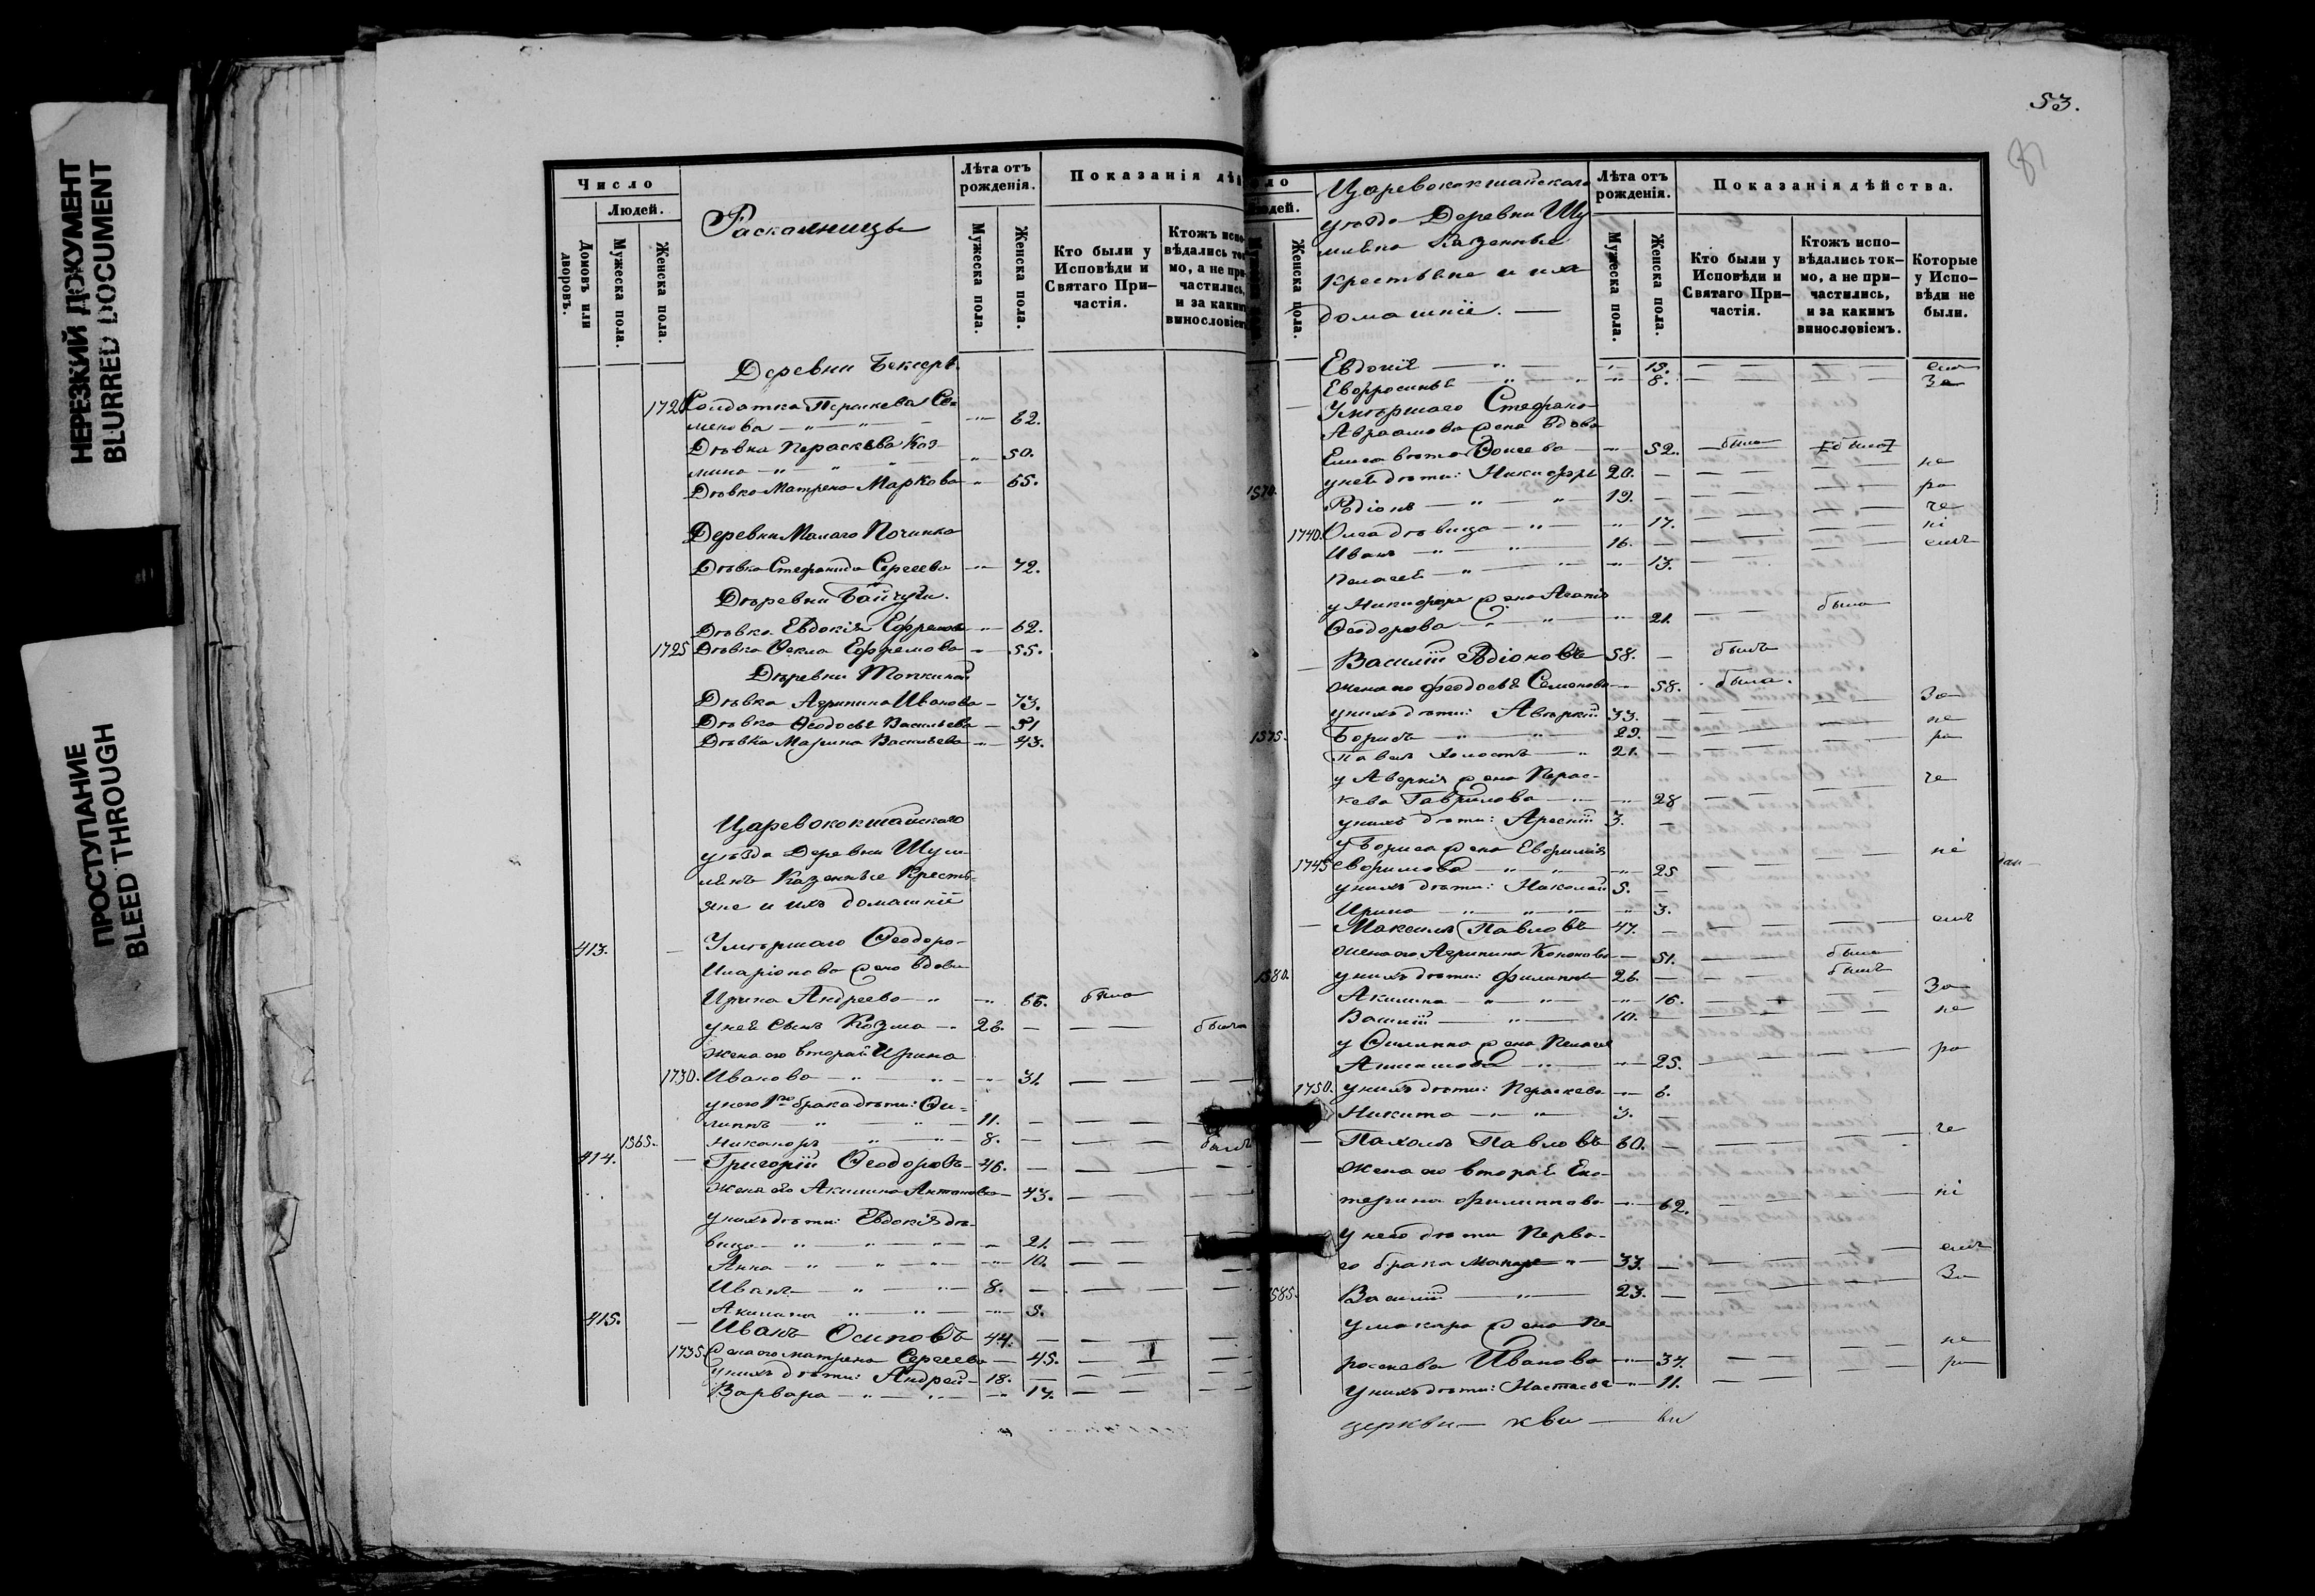 НЕРЕЗКИЙ ДОКУМЕНТ
BLURRED DOCUMENT
ПРОСТУПАНИЕ
BLEED THROUGH
Число
Людей.
Домовъ или дворовъ.
Мужеска пола.
Женска пола.
Раскольницы
Лѣта отъ рожденія.
Мужеска пола.
Женска пола.
Показанія дѣй
Кто были у Исповѣди и Святаго При-
частія.
Ктожъ испо-
вѣдались ток-
мо, а не при-
частились,
и за какимъ
винословіемъ
Деревни
Солдатка Параскева Се-
менова — 62.
Дѣвка Параскева Коз-
мина — 50.
Дѣвка Матрена Маркова — 65.
Деревни Малаго Починка
Дѣвка Стефанида Сергеева — 72.
Дѣревни
Дѣвка Евдокія Ефремова — 62.
1725 Дѣвка Фекла Ефремова — 55.
Дѣревни Топкиной
Дѣвка Агрипина Иванова — 73.
Дѣвка Феодосья Васильева — 51
Дѣвка Марина Васильева — 43.
Царевококшайскаго
уѣзда Деревни Шуи-
Казенные Кресть-
яне и ихъ домашніе
413. Умершаго Ѳеодора
Иларіонова жена вдова
Ирина Андреева — 66. была
у ней сынъ Козма — 26. — —
жена его вторая Ирина
1730. Иванова — 31. — —
у него 1го брака дѣти: Фи-
липпъ — 11. —
1565. Никаноръ — 8. — былъ
414. — Григорій Ѳеодоровъ — 46. —
жена его Акилина Антонова — 43. —
у нихъ дѣти: Евдокія дѣ-
вица — 21. —
Анна — 10. —
Иванъ — 8. —
Акилина — 5.
415. — Иванъ Осиповъ 44. —
1735. Жена его Матрена Сергеева — 45. —
у нихъ дѣти: Андрей — 18. —
Варвара — 17. —
53.
Женска пола.
Царевококшайскаго
уѣзда Деревни Шу
Казенные
крестьяне и ихъ
домашніе. —
Лѣта отъ рожденія.
Мужеска пола.
Женска пола.
Показанія дѣйства.
Кто были у Исповѣди и Святаго При-
частія.
Ктожъ испо-
вѣдались ток-
мо, а не при-
частились,
и за какимъ
винословіемъ.
Которые у Испо-
вѣди не были.
Евдокія — 13. —
Евфросинья — 8. — За
— Умершаго Стефана
Авраамова жена вдова
Елисавета — 52. — была
у ней дѣти: Никифоръ 20. — не
1570. Родіонъ — 19. — ра
1740. Олга дѣвица — 17. — че
Иванъ — 16. — ні
Пелагея — 13. — емъ
у Никифора жена Агапія
Ѳеодорова — 21. — была
— Василій Родіоновъ 58. — былъ
жена его Феодосья Семенова — 58. была.
у нихъ дѣти: Аверкій 33. — За
1575. Борисъ — 29. — не
Павелъ холостъ — 21. — ра
у Аверкія жена Парас-
кева Гаврилова — 28 — че
у нихъ дѣти: Арсеній 3. —
у Бориса жена Евфимія
1745 Ефимова — 25 — ні
у нихъ дѣти: Николай 5. —
Ирина — 3.
— Максимъ Павловъ 47. — емъ
жена его Агрипина Кононова — 51. — была
1580. у нихъ дѣти: Филиппъ 26. — былъ
Акилина — 16. — За
Василій — 10. — не
у Филиппа жена Пелагея
— 25. — ра
1750. у нихъ дѣти: Параскева — 6.
Никита — 3. —
— Пахомъ Павловъ 60. — че
жена его вторая Ека-
терина Филиппова — 62. — ні
у него дѣти Перва-
го брака Макаръ — 33. — емъ
1585. Василій — 23. — За
у Макара жена Па
раскева Иванова — 34. — не
у нихъ дѣти: Настасья — 11. — ра
церкви — кви — ви